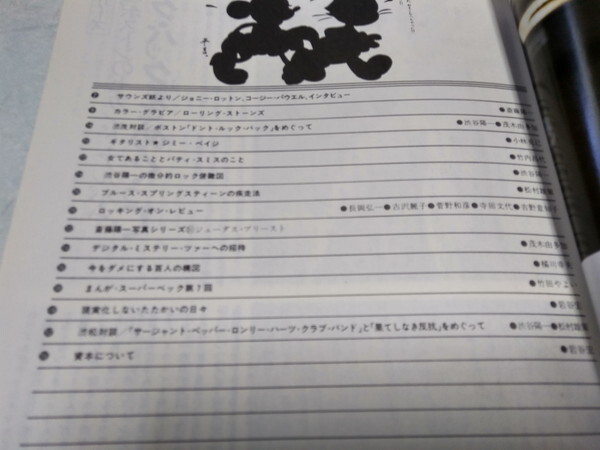 サウンズ紙より/ジョニー・ロットン、コージー・パウエル、インタビュー
カラー・グラビア/ローリング・ストーンズ
渋茂対談/ボストン「ドント・ルック・バック」をめぐって ●渋谷陽一●茂木
ギタリスト★ジミー・ペイジ
女であることとパティ・スミスのこと ●竹内
渋谷陽一の微分的ロック ●渋谷
ブルース・スプリングスティーンの疾走法 ●松村
ロッキング・オン・レビュー ●長岡弘一●古沢 子●菅野和彦●寺田文代
斎藤陽一写真シリーズ ジューダス・プリースト
デジタル・ミステリー・ツアーへの招待 ●茂木
今をダメにする百人の構図 ●橘川
まんが・スーパーベック第7回 ●竹田やよ
現実化しないたたかいの日々 ●岩谷
渋松対談/「サージャント・ペッパー・ロンリー・ハーツ・クラブ・バンド」と「果てしなき反抗」をめぐって ●渋谷陽一●松村
資本について ●岩谷